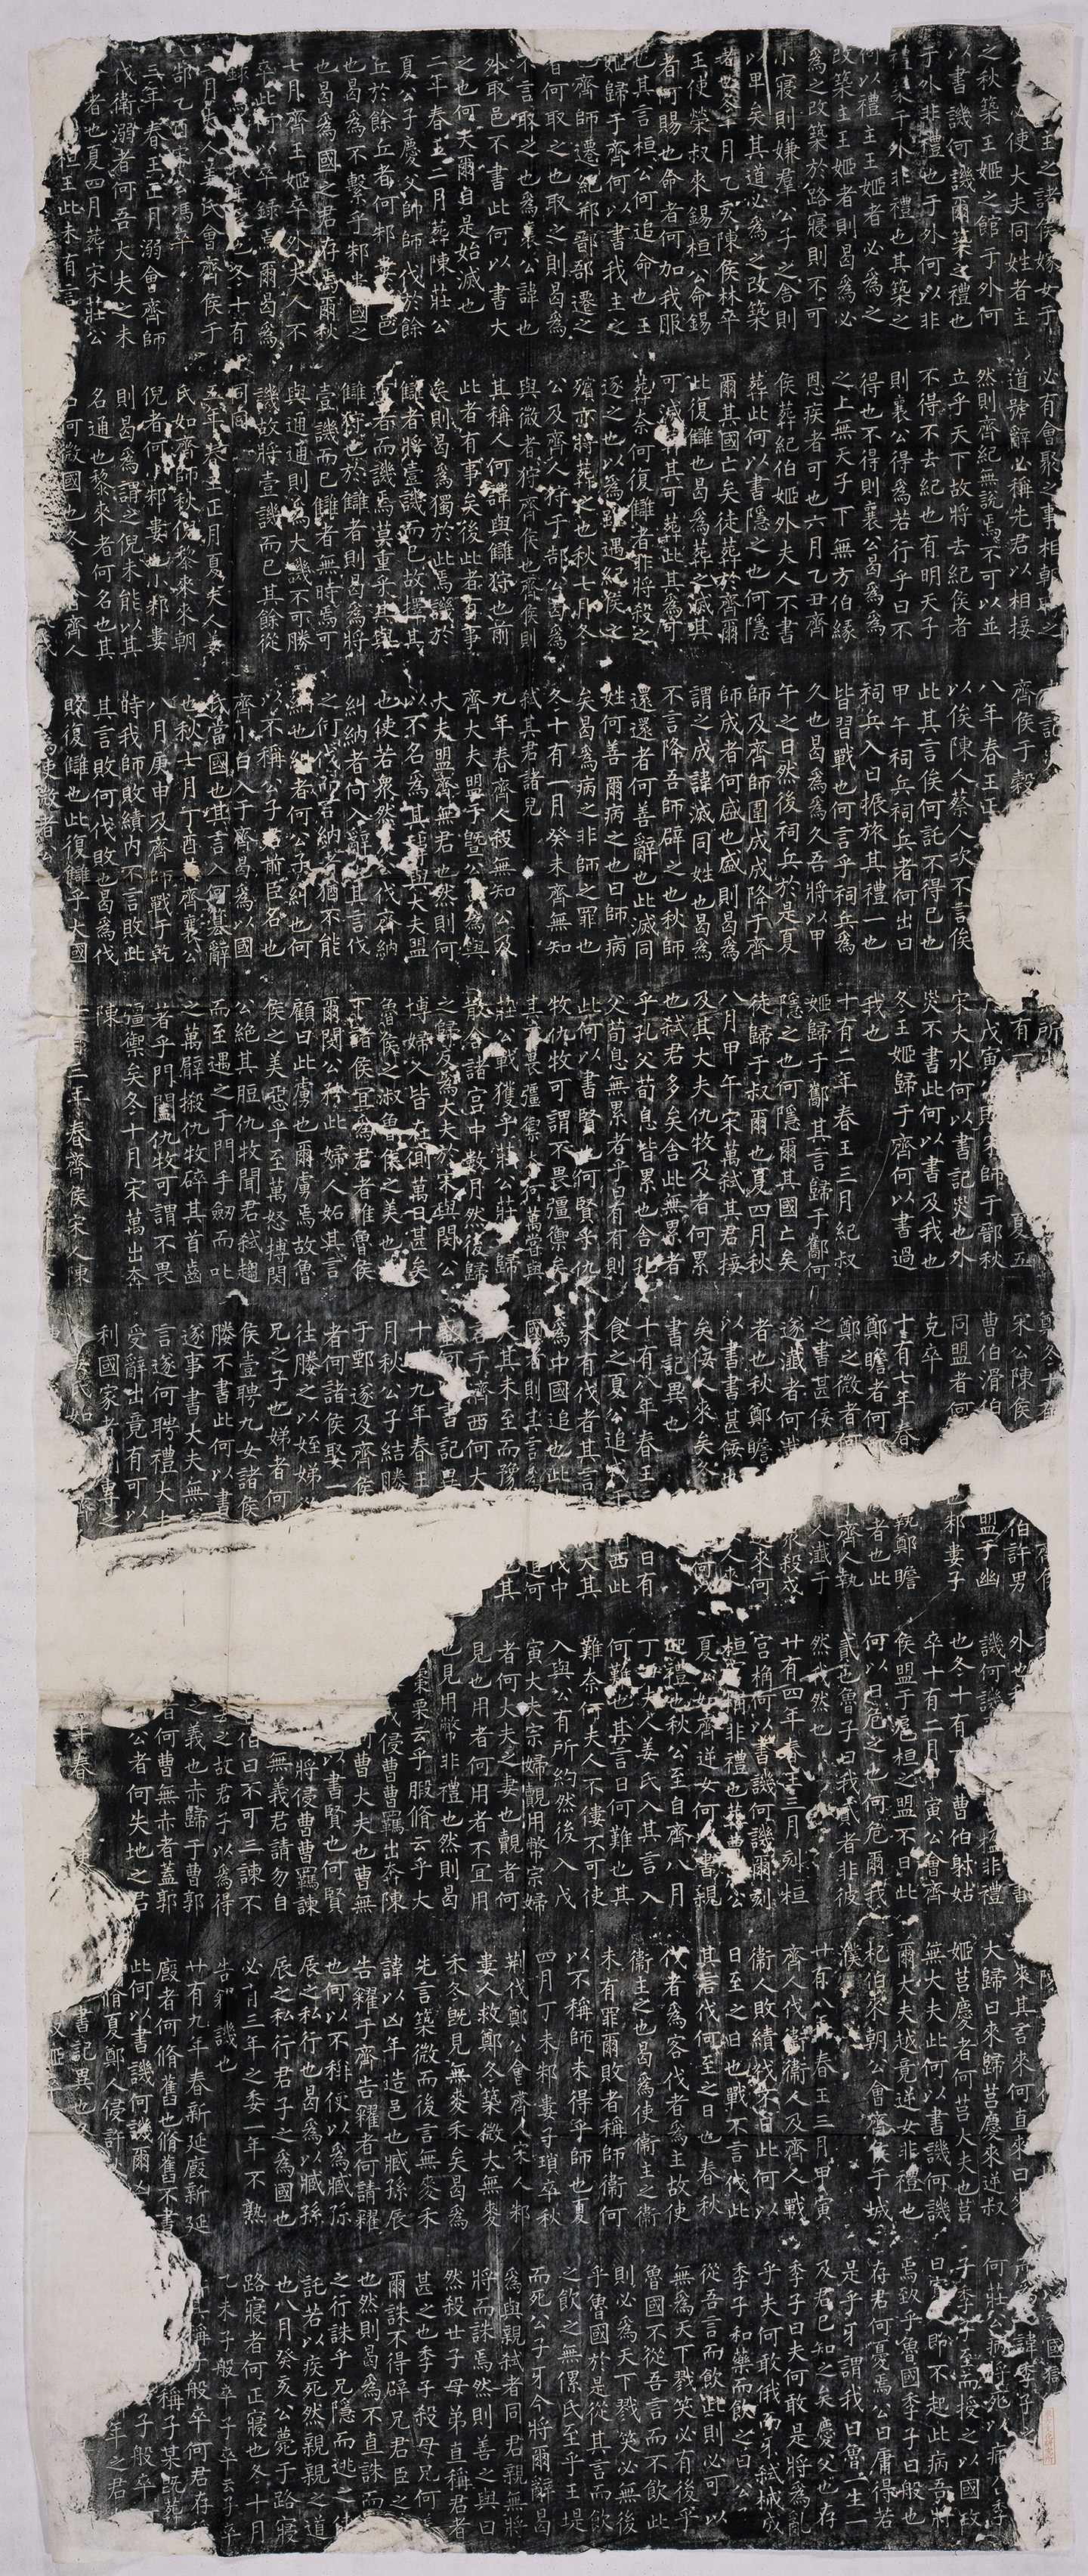 主之諸侯嫁女于
使大夫同姓者主
之秋築王姬之館于外何
以書譏何譏爾築之禮也
于外非禮也于外何以非
禮築于外非禮也其築之
何以禮主王姬者必為之
改築主王姬者則曷為必
為之改築於路寢則不可
小寢則嫌羣公子之舍則
以卑矣其道必為之改築
者也冬十月乙亥陳侯林卒
王使榮叔來錫桓公命錫
者何賜也命者何加我服
也其言桓公何追命也王
姬歸于齊何以書我主之
也齊師遷紀郱鄑郚遷之
者何取之也取之則曷為
不言取之也為襄公諱也
外取邑不書此何以書大
之也何大爾自是始滅也
二年春王二月葬陳莊公
夏公子慶父帥師伐於餘
丘於餘丘者何邾婁之邑
也曷為不繫乎邾婁國之
也曷為國之君存焉爾秋
七月齊王姬卒外夫人不
卒此何以卒錄焉爾曷為
錄焉 也冬十有
二月夫人姜氏會齊侯于
郜乙酉宋公馮卒
三年春王正月溺會齊師
伐衛溺者何吾大夫之未
者也夏四月葬宋莊公
桓王此未有言
必有會聚之事相朝聘之
道號辭必稱先君以相接
然則齊紀無說焉不可以並
立乎天下故將去紀侯者
不得不去紀也有明天子
則襄公得為若行乎曰不
得也不得則襄公曷為為
之上無天子下無方伯緣
恩疾者可也六月乙丑齊
侯葬紀伯姬外夫人不書
葬此何以書隱之也何隱
爾其國亡矣徒葬於齊爾
此復讎也曷為葬之滅其
可滅葬其可葬此其為可
葬奈何復讎者非將殺之
逐之也以為雖遇紀侯之
殯亦將葬之也秋七月冬
公及齊人狩于郜公曷為
與微者狩齊侯也齊侯則
其稱人何諱與讎狩也前
此者有事矣後此者有事
矣則曷為獨於此焉譏於
讎者將壹譏而已故擇其
重者而譏焉莫重乎其與
讎狩也於讎者則曷為將
壹譏而已讎者無時焉可
與通通則為大譏不可勝
譏故將壹譏而已其餘從
同同
五年春王正月夏夫人姜
氏如齊師秋倪黎來來朝
倪者何小邾婁也小邾婁
則曷為謂之倪未能以其
名通也黎來者何名也其
名何微國也冬公會齊人
記
齊侯于穀
八年春王正
以俟陳人蔡人次不言俟
此其言俟何託不得已也
甲午祠兵祠兵者何出曰
祠兵入曰振旅其禮一也
皆習戰也何言乎祠兵為
久也曷為為久吾將以甲
午之日然後祠兵於是夏
師及齊師圍成成降于齊
師成者何盛也盛則曷為
謂之成諱滅同姓也曷為
不言降吾師辟之也秋師
還還者何善辭也此滅同
姓何善爾病之也曰師病
矣曷為病之非師之罪也
冬十有一月癸未齊無知
弒其君諸兒
九年春齊人殺無知公及
齊大夫盟于暨公曷為與
大夫盟齊無君也然則何
以不名為其諱與大夫盟
也使若衆然夏公伐齊納
糾納者何入辭也其言伐
之何伐而言納之猶不能
納也糾者何公子糾也何
以不稱公子君前臣名也
齊小白入于齊曷為以國
氏當國也其言入何篡辭
也秋七月丁酉葬齊襄公
八月庚申及齊師戰于乾
時我師敗績內不言敗此
其言敗何伐敗也曷為伐
敗復讎也此復讎乎大國
為使微者公
所
有一 夏五
戊寅 敗宋師于鄑秋
宋大水何以書記災也外
災不書此何以書及我也
冬王姬歸于齊何以書過
我也
十有二年春王三月紀叔
姬歸于酅其言歸于酅何
隱之也何隱爾其國亡矣
徒歸于叔爾也夏四月秋
八月甲午宋萬弒其君接
及其大夫仇牧及者何累
也弒君多矣舍此無累者
乎孔父荀息皆累也舍孔
父荀息無累者乎曰有有則
此何以書賢也何賢乎仇
牧仇牧可謂不畏彊禦矣
其不畏彊禦奈何萬嘗與
莊公戰獲乎莊公莊公歸
散舍諸宮中數月然後歸
之歸反為大夫於宋與閔公
博婦人皆在側萬曰甚矣
魯侯之淑魯侯之美也天
下諸侯宜為君者唯魯侯
爾閔公矜此婦人妒其言
顧曰此虜也爾虜焉故魯
侯之美惡乎至萬怒搏閔
公絕其脰仇牧聞君弒趨
而至遇之于門手劒而叱
之萬臂摋仇牧碎其首齒
著乎門闔仇牧可謂不畏
彊禦矣冬十月宋萬出奔
陳
三年春齊侯宋人陳
宋公陳侯
伯許男
曹伯滑伯
盟于幽
同盟者何
邾婁子
克卒
十有七年春
執鄭瞻
鄭瞻者何
者也此
鄭之微者何
齊人執
之書甚佞
瀸于
遂瀸者何
衆殺戍
者也秋鄭瞻
之來何
以書書甚佞
人來
矣佞人來矣冬
書記異也
十有八年春王
日有
食之夏公追戎于
西此
未有伐者其言
大其
為中國追也此
伐中
人其未至而豫
也其
國 則其言為
于濟西何大
何 書記異
十九年春王
月秋公子結媵
于鄄遂及齊侯
者何諸侯娶一
往媵之以姪娣從
兄之子也娣者何
侯壹聘九女諸侯
媵不書此何以書
遂事書大夫無
言遂何聘禮大夫
受辭出竟有可以
利國家者則專之
外也
譏何譏 非禮
也冬十有 曹伯射姑
卒十有二月甲寅公會齊
侯盟于扈桓之盟不日此
何以日危之也何危爾我
貳也魯子曰我貳者非彼
然我然也
廿有四年春王三月刻桓
宮桷何以書譏何譏爾刻
桓宮桷非禮也葬曹莊公
夏公如齊逆女何以書親
迎禮也秋公至自齊八月
丁丑夫人姜氏入其言入
何難也其言日何難也其
難奈何夫人不僂不可使
入與公有所約然後入戊
寅大夫宗婦覿用幣宗婦
者何大夫之妻也覿者何
見也用者何用者不宜用
也見用幣非禮也然則曷
棗栗云乎腶脩云乎大
戎侵曹曹羈出奔陳
何曹大夫也曹無
以書賢也何賢
將侵曹曹羈諫
無義君請勿自
伯曰不可三諫不
之故君子以為得
之義也赤歸于曹郭
者何曹無赤者蓋郭
公者何失地之君
年春
來其言來何直來曰來
大歸曰來歸莒慶來逆叔
姬莒慶者何莒大夫也莒
無大夫此何以書譏何譏
爾大夫越竟逆女非禮也
杞伯來朝公會齊侯于城
濮
廿有八年春王三月甲寅
齊人伐衛衛人及齊人戰
衛人敗績伐不日此何以
日至之日也戰不言伐此
其言伐何至之日也春秋
伐者為客伐者為主故使
衛主之也曷為使衛主之衛
未有罪爾敗者稱師衛何
以不稱師未得乎師也夏
四月丁未邾婁子瑣卒秋
荊伐鄭公會齊人宋人邾
婁人救鄭冬築微大無麥
禾冬旣見無麥禾矣曷為
先言築微而後言無麥禾
諱以凶年造邑也臧孫辰
告糴于齊告糴者何請糴
也何以不稱使以為臧孫
辰之私行也曷為以臧孫
辰之私行君子之為國也
必有三年之委一年不熟
告糴譏也
廿有九年春新延廄新延
廄者何脩舊也脩舊不書
此何以書譏何譏爾凶
脩夏鄭人侵許
書記異也
國獄
諱季子之
何莊公病將死以病召季
子季子至而授之以國政
曰寡人即不起此病吾將
焉致乎魯國季子曰般也
存君何憂焉公曰庸得若
是乎牙謂我曰魯一生一
及君已知之矣慶父也存
季子曰夫何敢是將為亂
乎夫何敢俄而牙弒械成
季子和藥而飲之曰公子
從吾言而飲此則必可以
無為天下戮笑必有後乎
魯國不從吾言而不飲此
則必為天下戮笑必無後
乎魯國於是從其言而飲
之飲之無傫氏至乎王堤
而死公子牙今將爾辭曷
為與親弒者同君親無將
將而誅焉然則善之與曰
然殺世子母弟直稱君者
甚之也季子殺母兄何善
爾誅不得辟兄君臣之
也然則曷為不直誅而
之行誅乎兄隱而逃之使
託若以疾死然親親之道
也八月癸亥公薨于路寢
路寢者何正寢也冬十月
乙未子般卒子卒云子卒
稱子般卒何君存
稱子某旣葬
子般卒
年之君